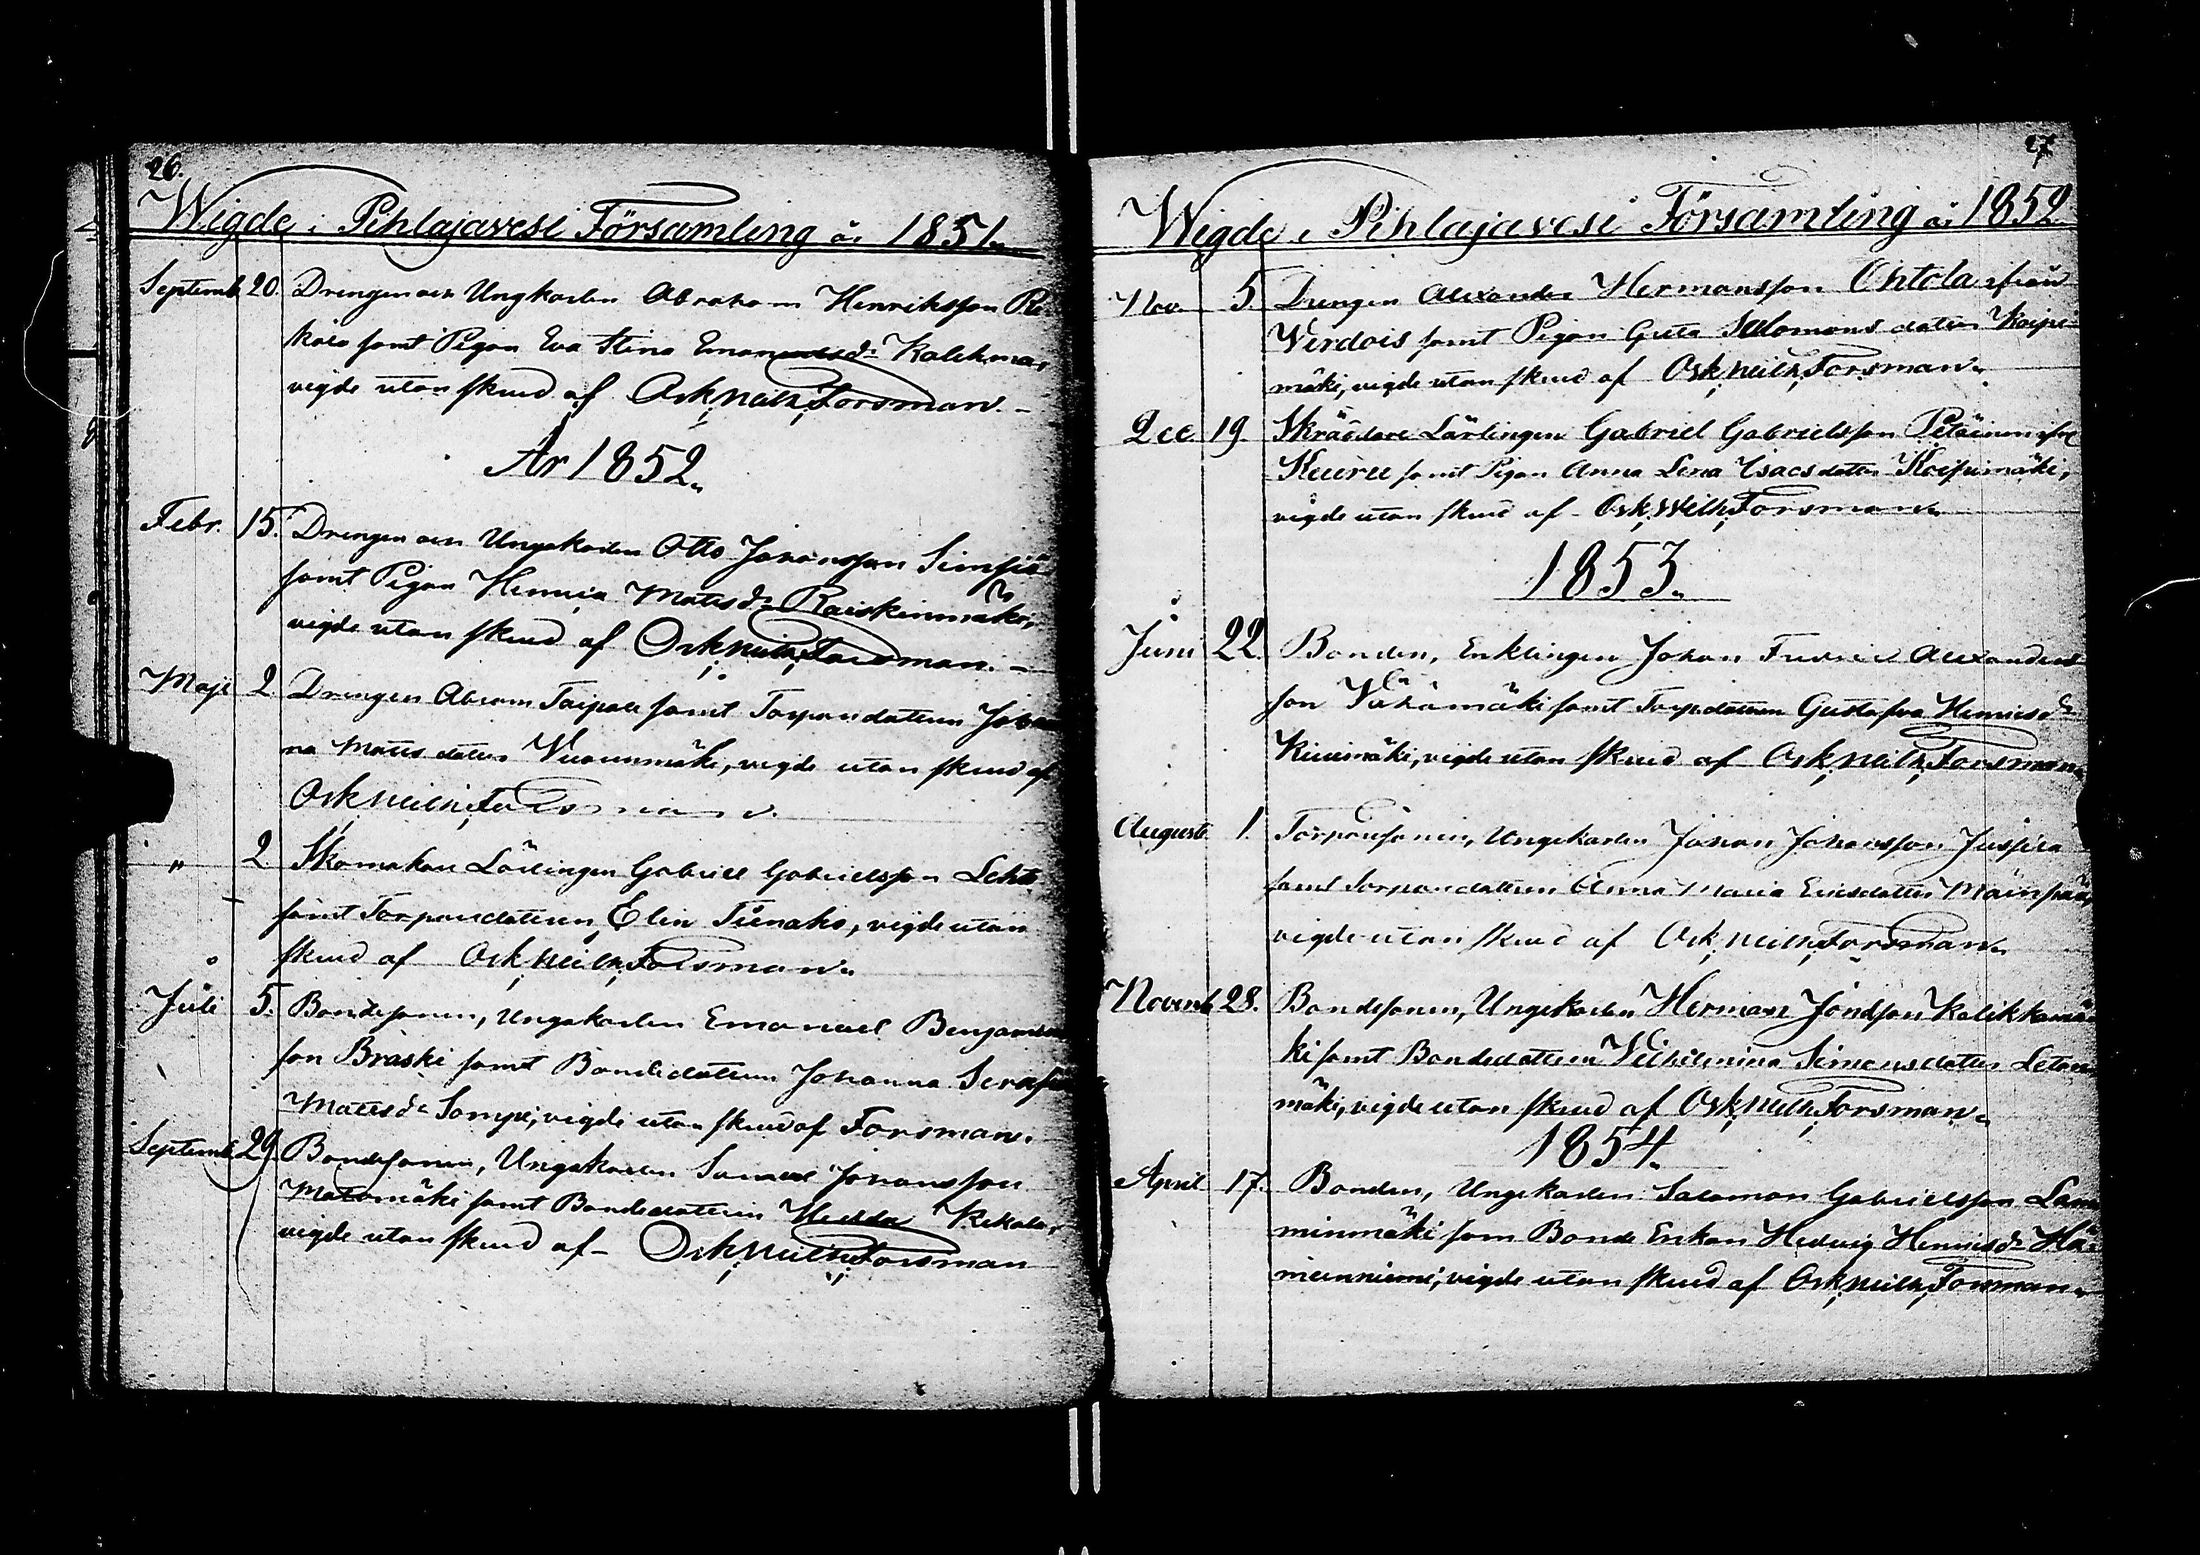 26.
Wigde i Pihlajavesi Församling år 1851.
Septemb. 20. Drengen och Ungkarlen Abraham Henriksson
samt Pigan Eva Stina Kalikmar
vigde utan skrud af Osk. Wilh. Forsman.
År 1852.
Febr. 15. Drengen och Ungekarlen Otto Johansson Simsiö
samt Pigan Henrica Matts dr. Raiskinmäki,
vigde utan skrud af Osk. Wilh. Forsman.
Maji 2 Drengen Abram Taipale samt Torparedattern Johan
na Matts datter Vuorenmäki, vigde utan skrud af
Osk. Wilh. Forsman.
" 2 Skomakare Lärlingen Gabriel Gabrielsson Lehto
samt Torparedattern Elin Tienaho, vigde utan
skrud af Osk. Wilh. Forsman.
Juli 5. Bondesonen, Ungekarlen Emanuel Benjamins
son Braski samt Bondedattern Johanna Serafia
Matts dr. Sompi, vigde utan skrud af Forsman.
Septemb. 29. Bondesonen, Ungekarlen Samuel Johansson
Matomäki samt Bondedattern Hedda Kekola,
vigde utan skrud af Osk. Wilh. Forsman
27
Wigde i Pihlajavesi Församling år 1852
Nov. 5. Drengen Alexander Hermansson Ohtola ifrån
Virdois samt Pigan Greta Salomons datter Koipi
mäki, vigde utan skrud af Osk. Wilh. Forsman.
Dec. 19. Skräddare Lärlingen Gabriel Gabrielsson
Keuru samt Pigan Anna Lena Isacs datter Koipimäki,
vigde utan skrud af Osk. Wilh. Forsman.
1853.
Juni 22. Bonden, Enklingen Johan Fredric Alexanders
son Vähämäki samt Torpdattern Gustafva Henrics dr.
Kiviimäki, vigde utan skrud af Osk. Wilh. Forsman.
August. 1. Torparesonen, Ungekarlen Johan Johansson Juspila
samt Torparedattern Anna Maria Ericsdatter Mäinpää,
vigde utan skrud af Osk. Wilh. Forsman.
Novemb. 28. Bondesonen, Ungekarlen Herman Kalikkamä
ki samt Bondedattern Vilhelmina Simonsdatter
mäki, vigde utan skrud af Osk. Wilh. Forsman.
1854.
April 17. Bonden, Ungekarlen Salomon Gabrielsson Lam
minmäki samt Bonde Enkan Hedvig Henrics dr. Hä
meenniemi, vigde utan skrud af Osk. Wilh. Forsman.